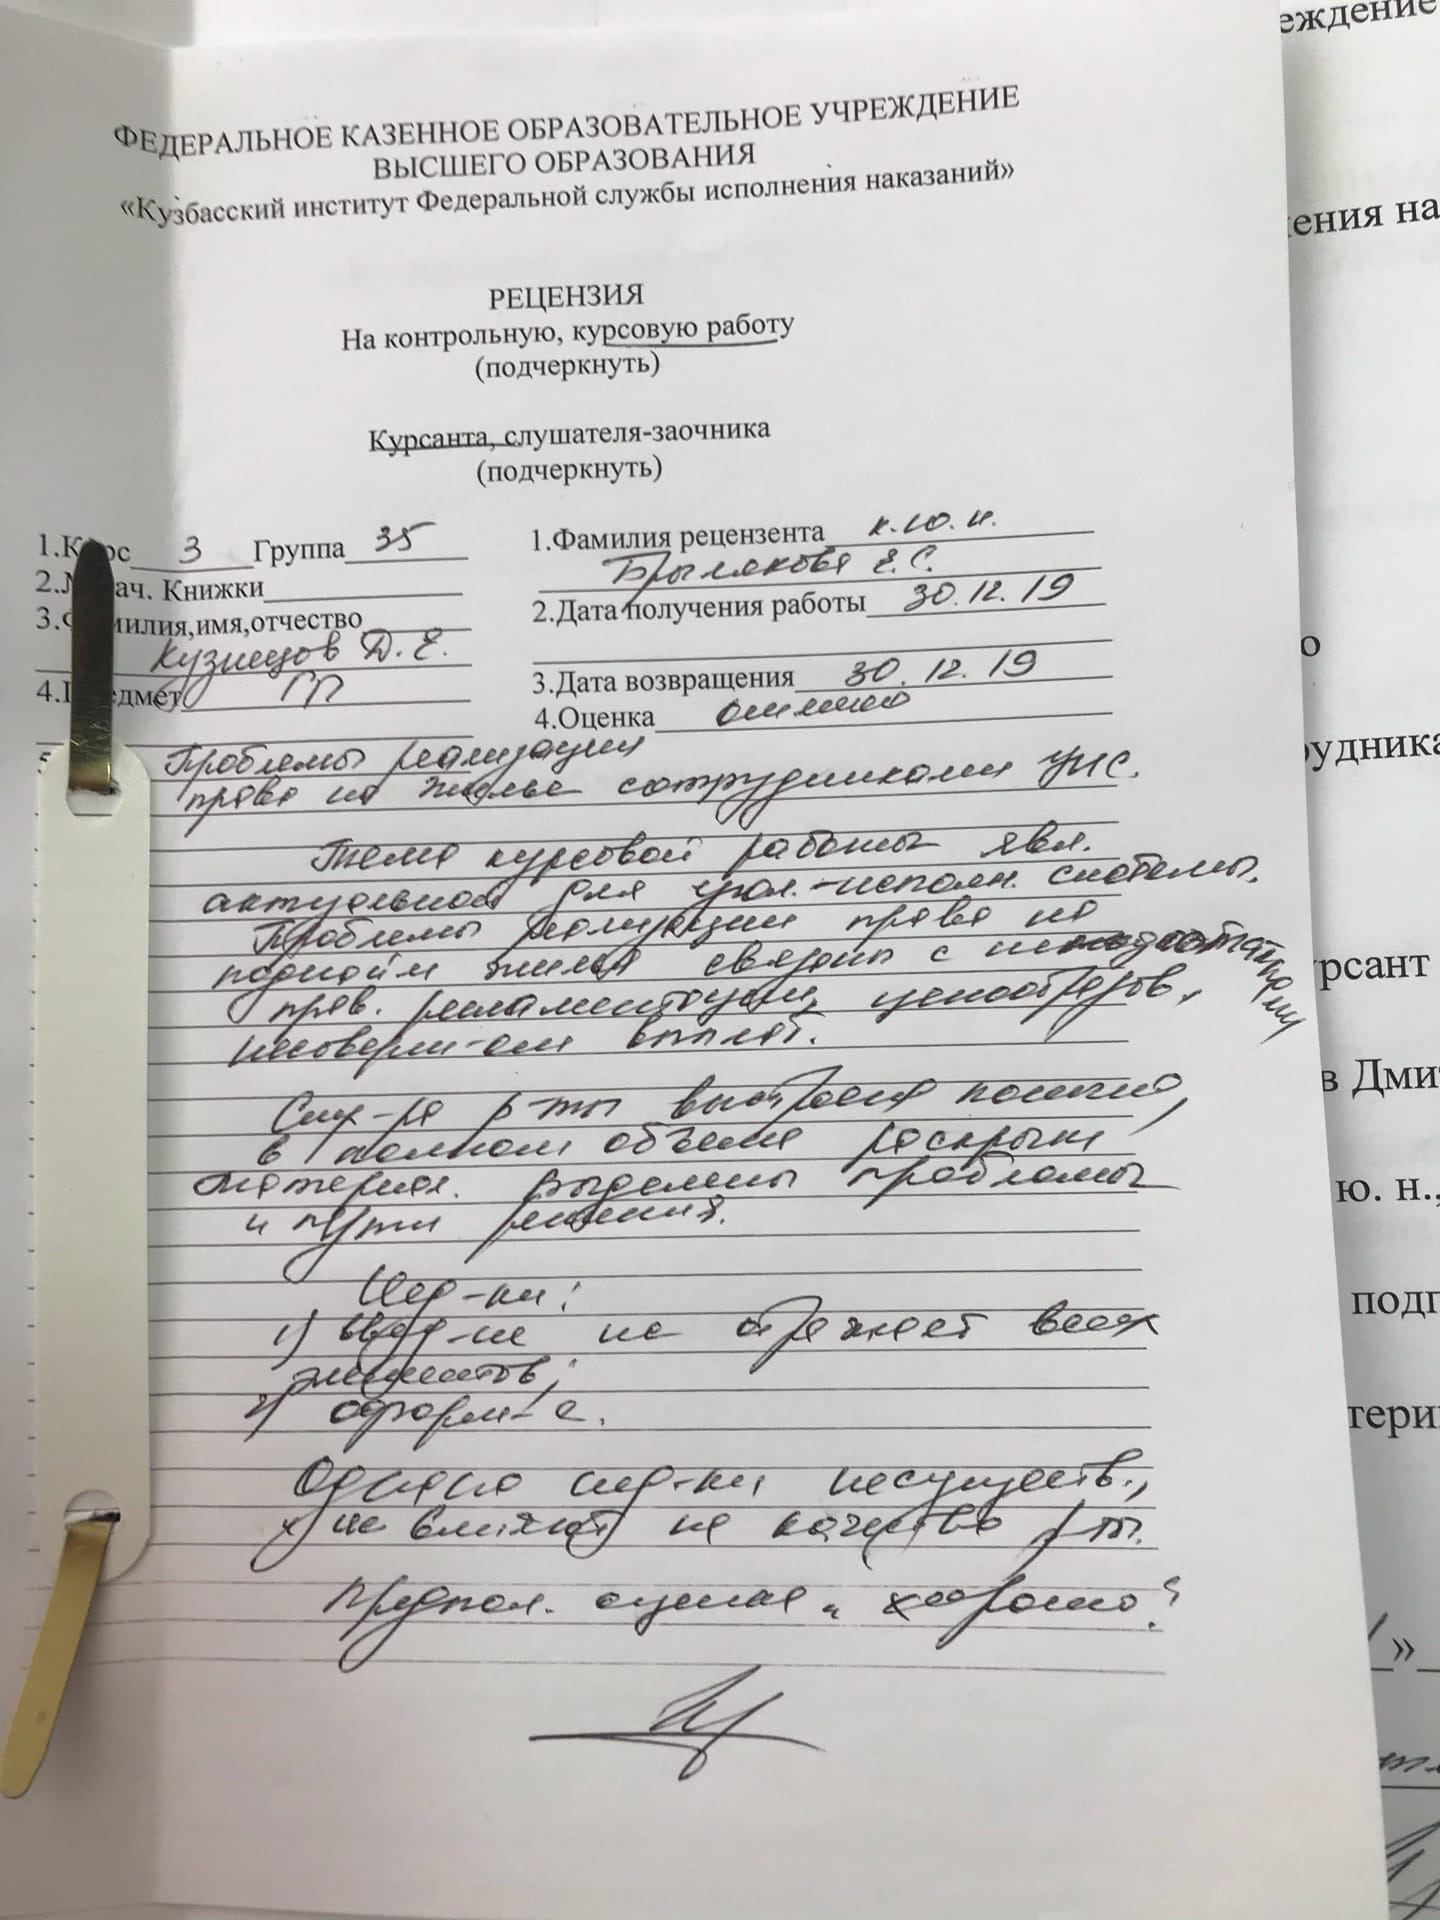 еждение
ФЕДЕРАЛЬНОЕ КАЗЕННОЕ ОБРАЗОВАТЕЛЬНОЕ УЧРЕЖДЕНИЕ
ВЫСШЕГО ОБРАЗОВАНИЯ
«Кузбасский институт Федеральной службы исполнения наказаний»
ения на
РЕЦЕНЗИЯ
На контрольную, курсовую работу
(подчеркнуть)
Курсанта, слушателя-заочника
(подчеркнуть)
1.К рс 3 Группа 35
2. ач. Книжки
3.Ф милия,имя,отчество
Кузнецов Д.Е.
4.П едмет ГП
1.Фамилия рецензента к.ю.н.
Брылякова Е.С.
2.Дата получения работы 30.12.19
3.Дата возвращения 30.12.19
4.Оценка отлично
о
рудника
Проблемы реализации
права на жилье сотрудниками УИС.
Тема курсовой работы явл.
актуальной для угол.-исполн. системы.
Проблемы реализации права на
жилья связаны с
прав. регламентации, ценообразов.,
выплат.
рсант
в Дми
Стр-ра р-ты выстроена логично,
в полном объеме раскрыт
материал. Выделены проблемы
и пути решения.
ю. н.,
подг
Нед-ки:
1) Введ-ие не отражает всех
элементов;
2) оформ-е.
тери
Однако нед-ки несуществ.,
и не влияют на качество р-ты.
Предпол. оценка "хорошо"
»